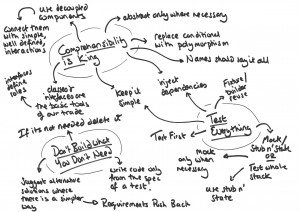 use decoupled
components
connect them
with simple,
well defined
interactions
interfaces
define roles
classes/
interfaces are
the basic tools
of our trade
Comprehensibility
is King
abstract only where necessary
replace conditional
with polymorphism
Names should say it all
Keep it
simple
inject
dependencies
Future/
wider
reuse
Test
Everything
Test First
Mock/
Stub n' state
OR
Test whole
stack
mock
only when
necessary
use stub n'
state
If its not needed delete it
Don't Build What
You Don't Need
Suggest alternative
solutions where
there is a simpler
way
Write code only
from the spec
of a test!
Requirements Push Back